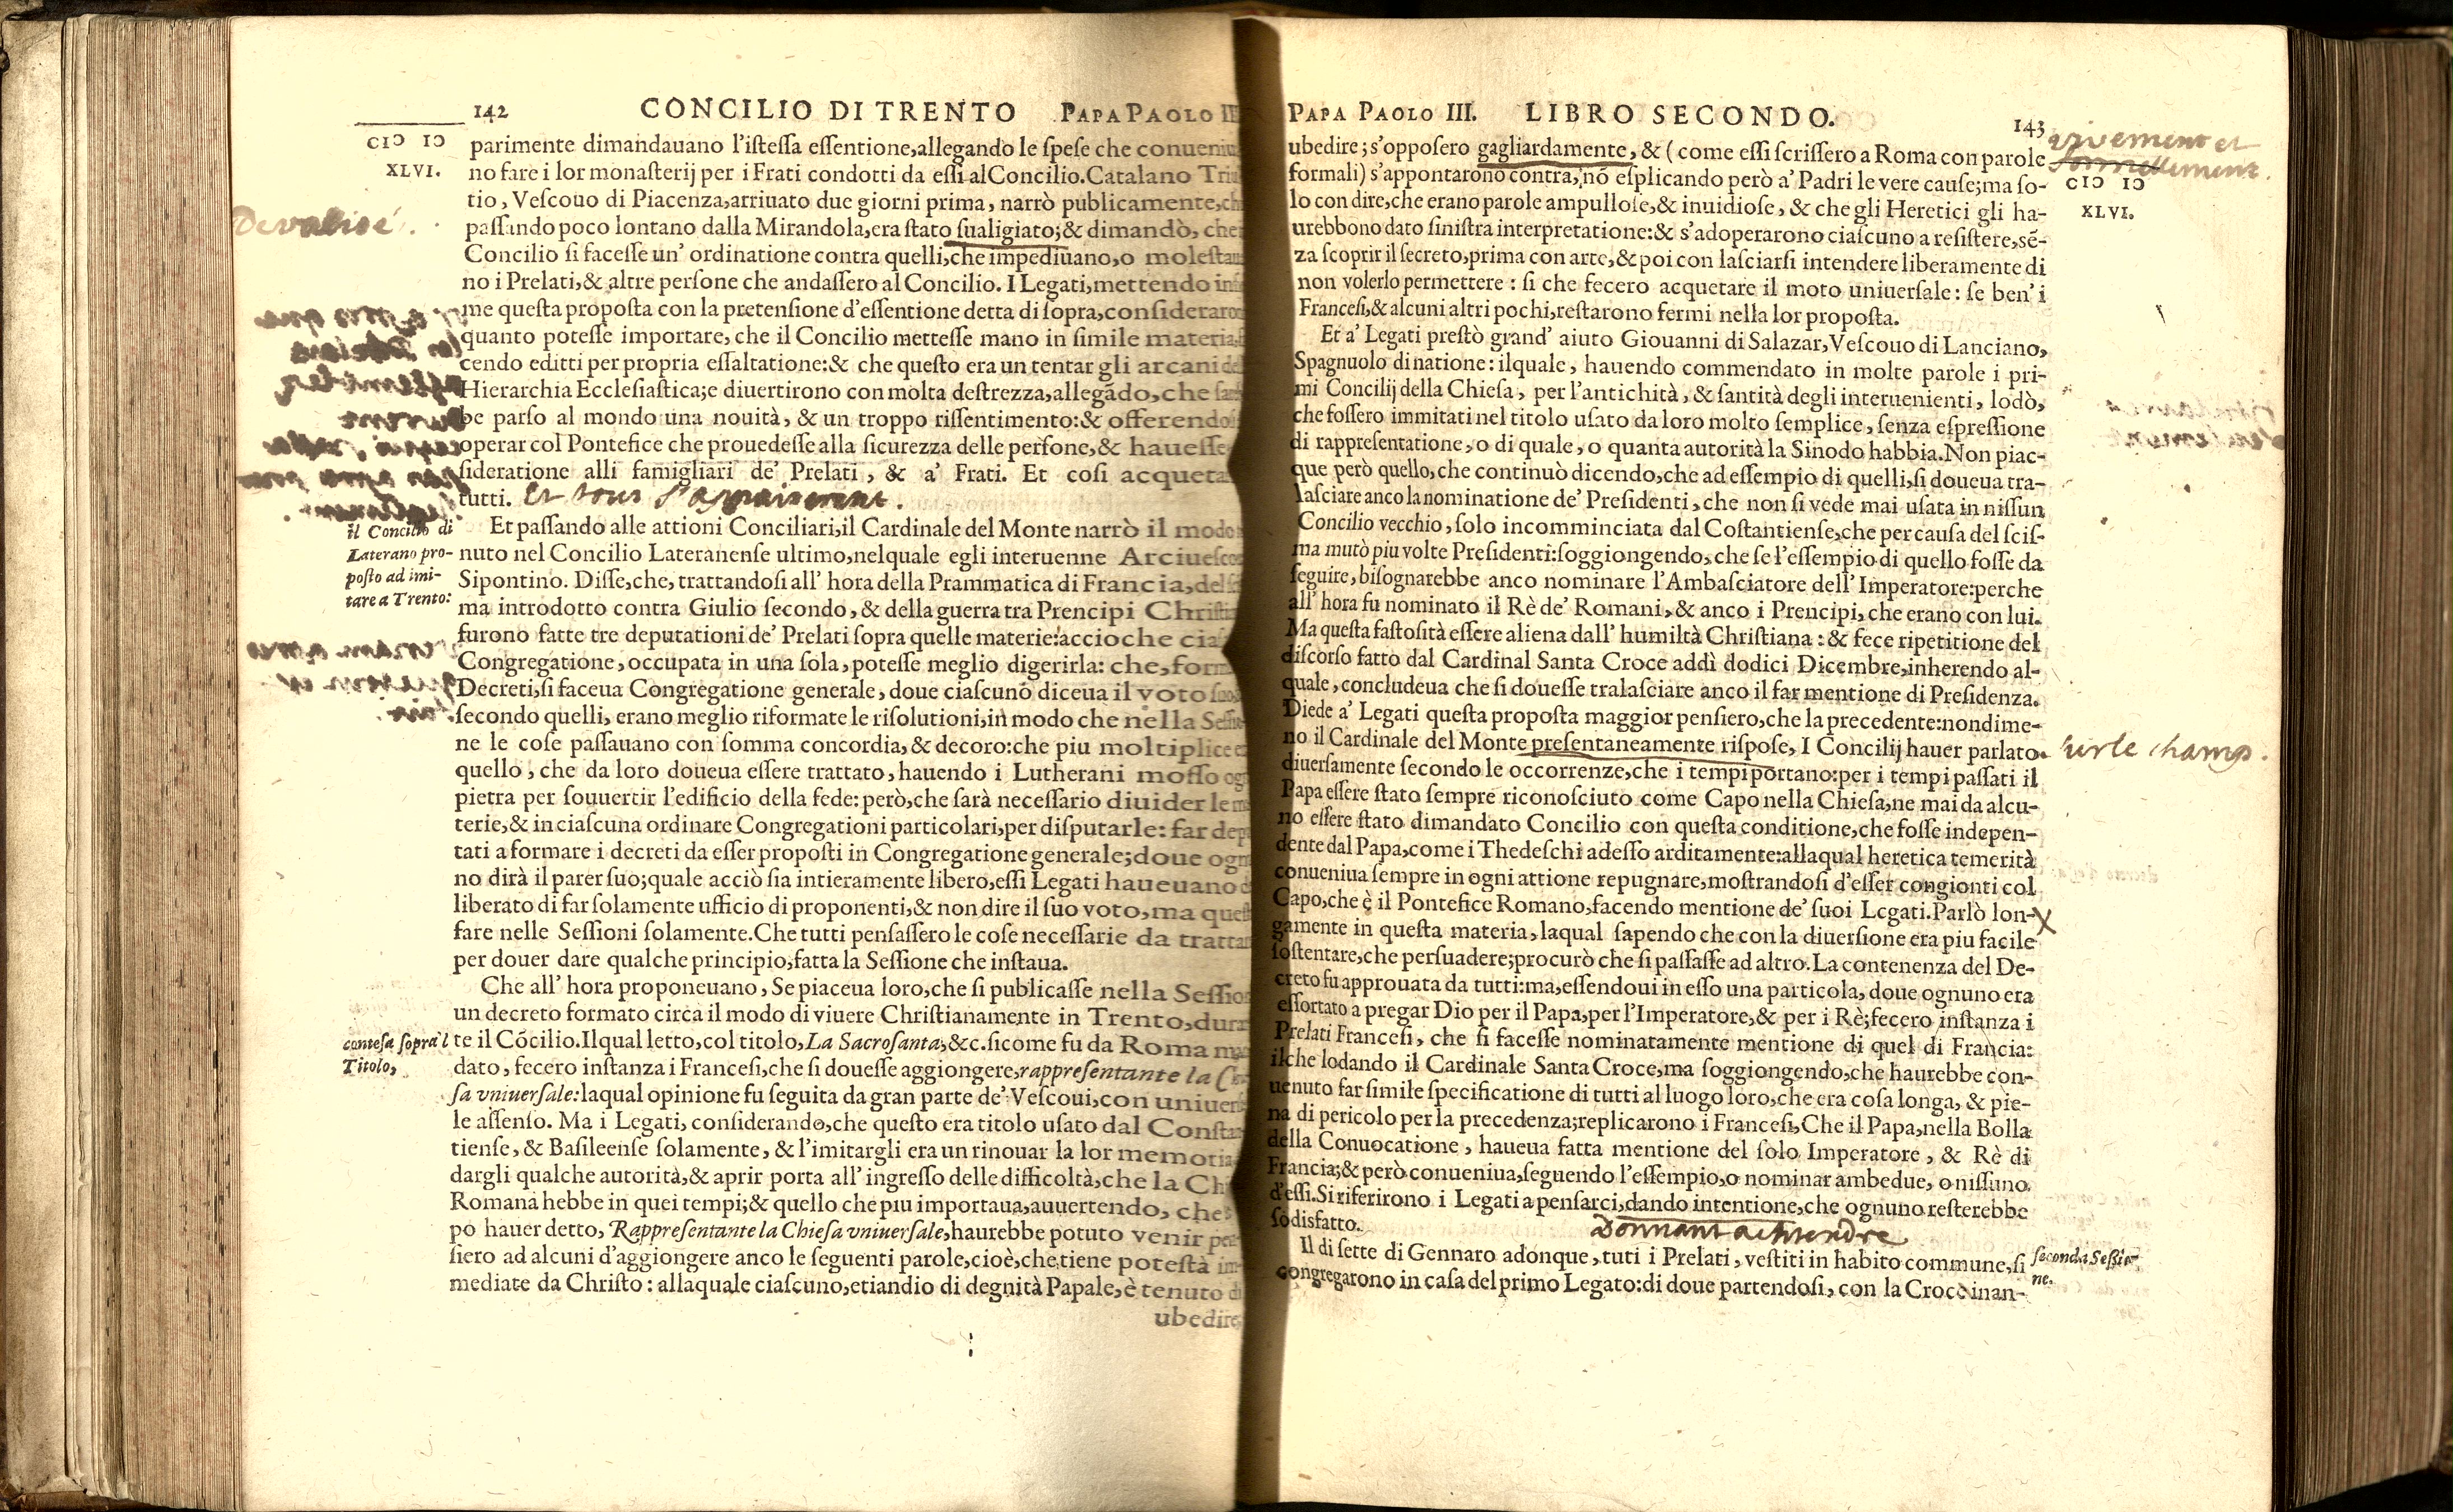 142 CONCILIO DI TRENTO PAPA PAOLO
CIↃ IↃ
XLVI.
parimente dimandauano l'iſteſſa eſſentione,allegando le ſpeſe che
no fare i lor monaſterij per i Frati condotti da eſſi al Concilio.Catalano
tio, Veſcouo di Piacenza,arriuato due giorni prima, narrò publicamente,
Devalisé.
paſſando poco lontano dalla Mirandola,era ſtato ſualigiato;& dimandò, che
Concilio ſi faceſſe un' ordinatione contra quelli,che impediuano,o
no i Prelati,& altre perſone che andaſſero al Concilio. I Legati,mettendo
me queſta propoſta con la pretenſione d'eſſentione detta di ſopra,
quanto poteſſe importare, che il Concilio metteſſe mano in ſimile
cendo editti per propria eſſaltatione:& che queſto era un tentar gli arcani
Hierarchia Eccleſiaſtica;e diuertirono con molta deſtrezza,allegādo, che
be parſo al mondo una nouità, & un troppo riſſentimento:&
operar col Pontefice che prouedeſſe alla ſicurezza delle perſone,& haueſſe
ſideratione alli famigliari de' Prelati, & a' Frati. Et coſi
tutti. Et tous s'appaiserent.
il Concilio di
Laterano pro-
poſto ad imi-
tare a Trento:
Et paſſando alle attioni Conciliari,il Cardinale del Monte narrò il
nuto nel Concilio Lateranenſe ultimo,nelquale egli interuenne
Sipontino. Diſſe,che, trattandoſi all' hora della Prammatica di Francia,
ma introdotto contra Giulio ſecondo, & della guerra tra Prencipi
furono fatte tre deputationi de' Prelati ſopra quelle materie:accioche
Congregatione, occupata in una ſola, poteſſe meglio digerirla: che,
Decreti,ſi faceua Congregatione generale, doue ciaſcuno diceua il voto
ſecondo quelli, erano meglio riformate le riſolutioni,in modo che nella
ne le coſe paſſauano con ſomma concordia, & decoro:che piu moltiplice
quello, che da loro doueua eſſere trattato, hauendo i Lutherani moſſo
pietra per ſouuertir l'edificio della fede: però,che ſarà neceſſario diuider le
terie,& in ciaſcuna ordinare Congregationi particolari,per diſputarle: far
tati a formare i decreti da eſſer propoſti in Congregatione generale;doue
no dirà il parer ſuo;quale acciò ſia intieramente libero,eſſi Legati haueuano
liberato di far ſolamente ufficio di proponenti,& non dire il ſuo voto,ma
fare nelle Seſſioni ſolamente.Che tutti penſaſſero le coſe neceſſarie da
per douer dare qualche principio,fatta la Seſſione che inſtaua.
Che all' hora proponeuano, Se piaceua loro,che ſi publicaſſe nella
un decreto formato circa il modo di viuere Chriſtianamente in Trento,
conteſa ſopra'l
Titolo,
te il Cōcilio.Ilqual letto,col titolo, La Sacroſanta,&c.ſicome fu da Roma
dato, fecero inſtanza i Franceſi,che ſi doueſſe aggiongere,rappreſentante la
ſa vniuerſale:laqual opinione fu ſeguita da gran parte de' Veſcoui,con
le aſſenſo. Ma i Legati, conſiderando,che queſto era titolo uſato dal
tienſe, & Baſileenſe ſolamente, & l'imitargli era un rinouar la lor
dargli qualche autorità,& aprir porta all' ingreſſo delle difficoltà,che la
Romana hebbe in quei tempi;& quello che piu importaua,auuertendo, che
po hauer detto, Rappreſentante la Chieſa vniuerſale,haurebbe potuto venir
ſiero ad alcuni d'aggiongere anco le ſeguenti parole,cioè,che,tiene poteſtà
mediate da Chriſto: allaquale ciaſcuno,etiandio di degnità Papale,è tenuto
ubedire
PAPA PAOLO III. LIBRO SECONDO. 143
vivement et
formellement.
CIↃ IↃ
XLVI.
ubedire; s'oppoſero gagliardamente, & ( come eſſi ſcriſſero a Roma con parole
formali) s'appontarono contra, nō eſplicando però a' Padri le vere cauſe;ma ſo-
lo con dire,che erano parole ampulloſe,& inuidioſe, & che gli Heretici gli ha-
urebbono dato ſiniſtra interpretatione:& s'adoperarono ciaſcuno a reſiſtere,sē-
za ſcoprir il ſecreto,prima con arte,& poi con laſciarſi intendere liberamente di
non volerlo permettere : ſi che fecero acquetare il moto uniuerſale: ſe ben' i
Franceſi,& alcuni altri pochi,reſtarono fermi nella lor propoſta.
Et a' Legati preſtò grand' aiuto Giouanni di Salazar,Veſcouo di Lanciano,
Spagnuolo di natione: ilquale, hauendo commendato in molte parole i pri-
mi Concilij della Chieſa, per l'antichità, & ſantità degli interuenienti, lodò,
che foſſero immitati nel titolo uſato da loro molto ſemplice, ſenza eſpreſſione
di rappreſentatione, o di quale, o quanta autorità la Sinodo habbia.Non piac-
que però quello,che continuò dicendo,che ad eſſempio di quelli,ſi doueua tra-
laſciare anco la nominatione de' Preſidenti, che non ſi vede mai uſata in niſſun
Concilio vecchio, ſolo incomminciata dal Coſtantienſe,che per cauſa del ſciſ-
ma mutò piu volte Preſidenti:ſoggiongendo, che ſe l'eſſempio di quello foſſe da
ſeguire, biſognarebbe anco nominare l'Ambaſciatore dell' Imperatore:perche
all' hora fu nominato il Rè de' Romani, & anco i Prencipi, che erano con lui.
Ma queſta faſtoſità eſſere aliena dall' humiltà Chriſtiana : & fece ripetitione del
diſcorſo fatto dal Cardinal Santa Croce addì dodici Dicembre,inherendo al-
quale, concludeua che ſi doueſſe tralaſciare anco il far mentione di Preſidenza.
Diede a' Legati queſta propoſta maggior penſiero,che la precedente:nondime-
no il Cardinale del Monte preſentaneamente riſpoſe, I Concilij hauer parlato
sur le champ.
diuerſamente ſecondo le occorrenze,che i tempi portano:per i tempi paſſati il
Papa eſſere ſtato ſempre riconoſciuto come Capo nella Chieſa,ne mai da alcu-
no eſſere ſtato dimandato Concilio con queſta conditione,che foſſe indepen-
dente dal Papa,come i Thedeſchi adeſſo arditamente:allaqual heretica temerità
conueniua ſempre in ogni attione repugnare,moſtrandoſi d'eſſer congionti col
Capo,che è il Pontefice Romano,facendo mentione de' ſuoi Legati.Parlò lon-
gamente in queſta materia, laqual ſapendo che con la diuerſione era piu facile
ſoſtentare,che perſuadere;procurò che ſi paſſaſſe ad altro.La contenenza del De-
creto fu approuata da tutti:ma,eſſendoui in eſſo una particola, doue ognuno era
eſſortato a pregar Dio per il Papa,per l'Imperatore,& per i Rè;fecero inſtanza i
Prelati Franceſi, che ſi faceſſe nominatamente mentione di quel di Francia:
ilche lodando il Cardinale Santa Croce,ma ſoggiongendo,che haurebbe con-
uenuto far ſimile ſpecificatione di tutti al luogo loro,che era coſa longa, & pie-
na di pericolo per la precedenza;replicarono i Franceſi,Che il Papa,nella Bolla
della Conuocatione, haueua fatta mentione del ſolo Imperatore, & Rè di
Francia;& però conueniua,ſeguendo l'eſſempio,o nominar ambedue, o niſſuno
d'eſſi.Si riferirono i Legati a penſarci,dando intentione,che ognuno reſterebbe
ſodisfatto.
Donnant a entendre
Il di ſette di Gennaro adonque, tuti i Prelati, veſtiti in habito commune,ſi
ſeconda Seſſio-
ne.
congregarono in caſa del primo Legato:di doue partendoſi, con la Croce inan-